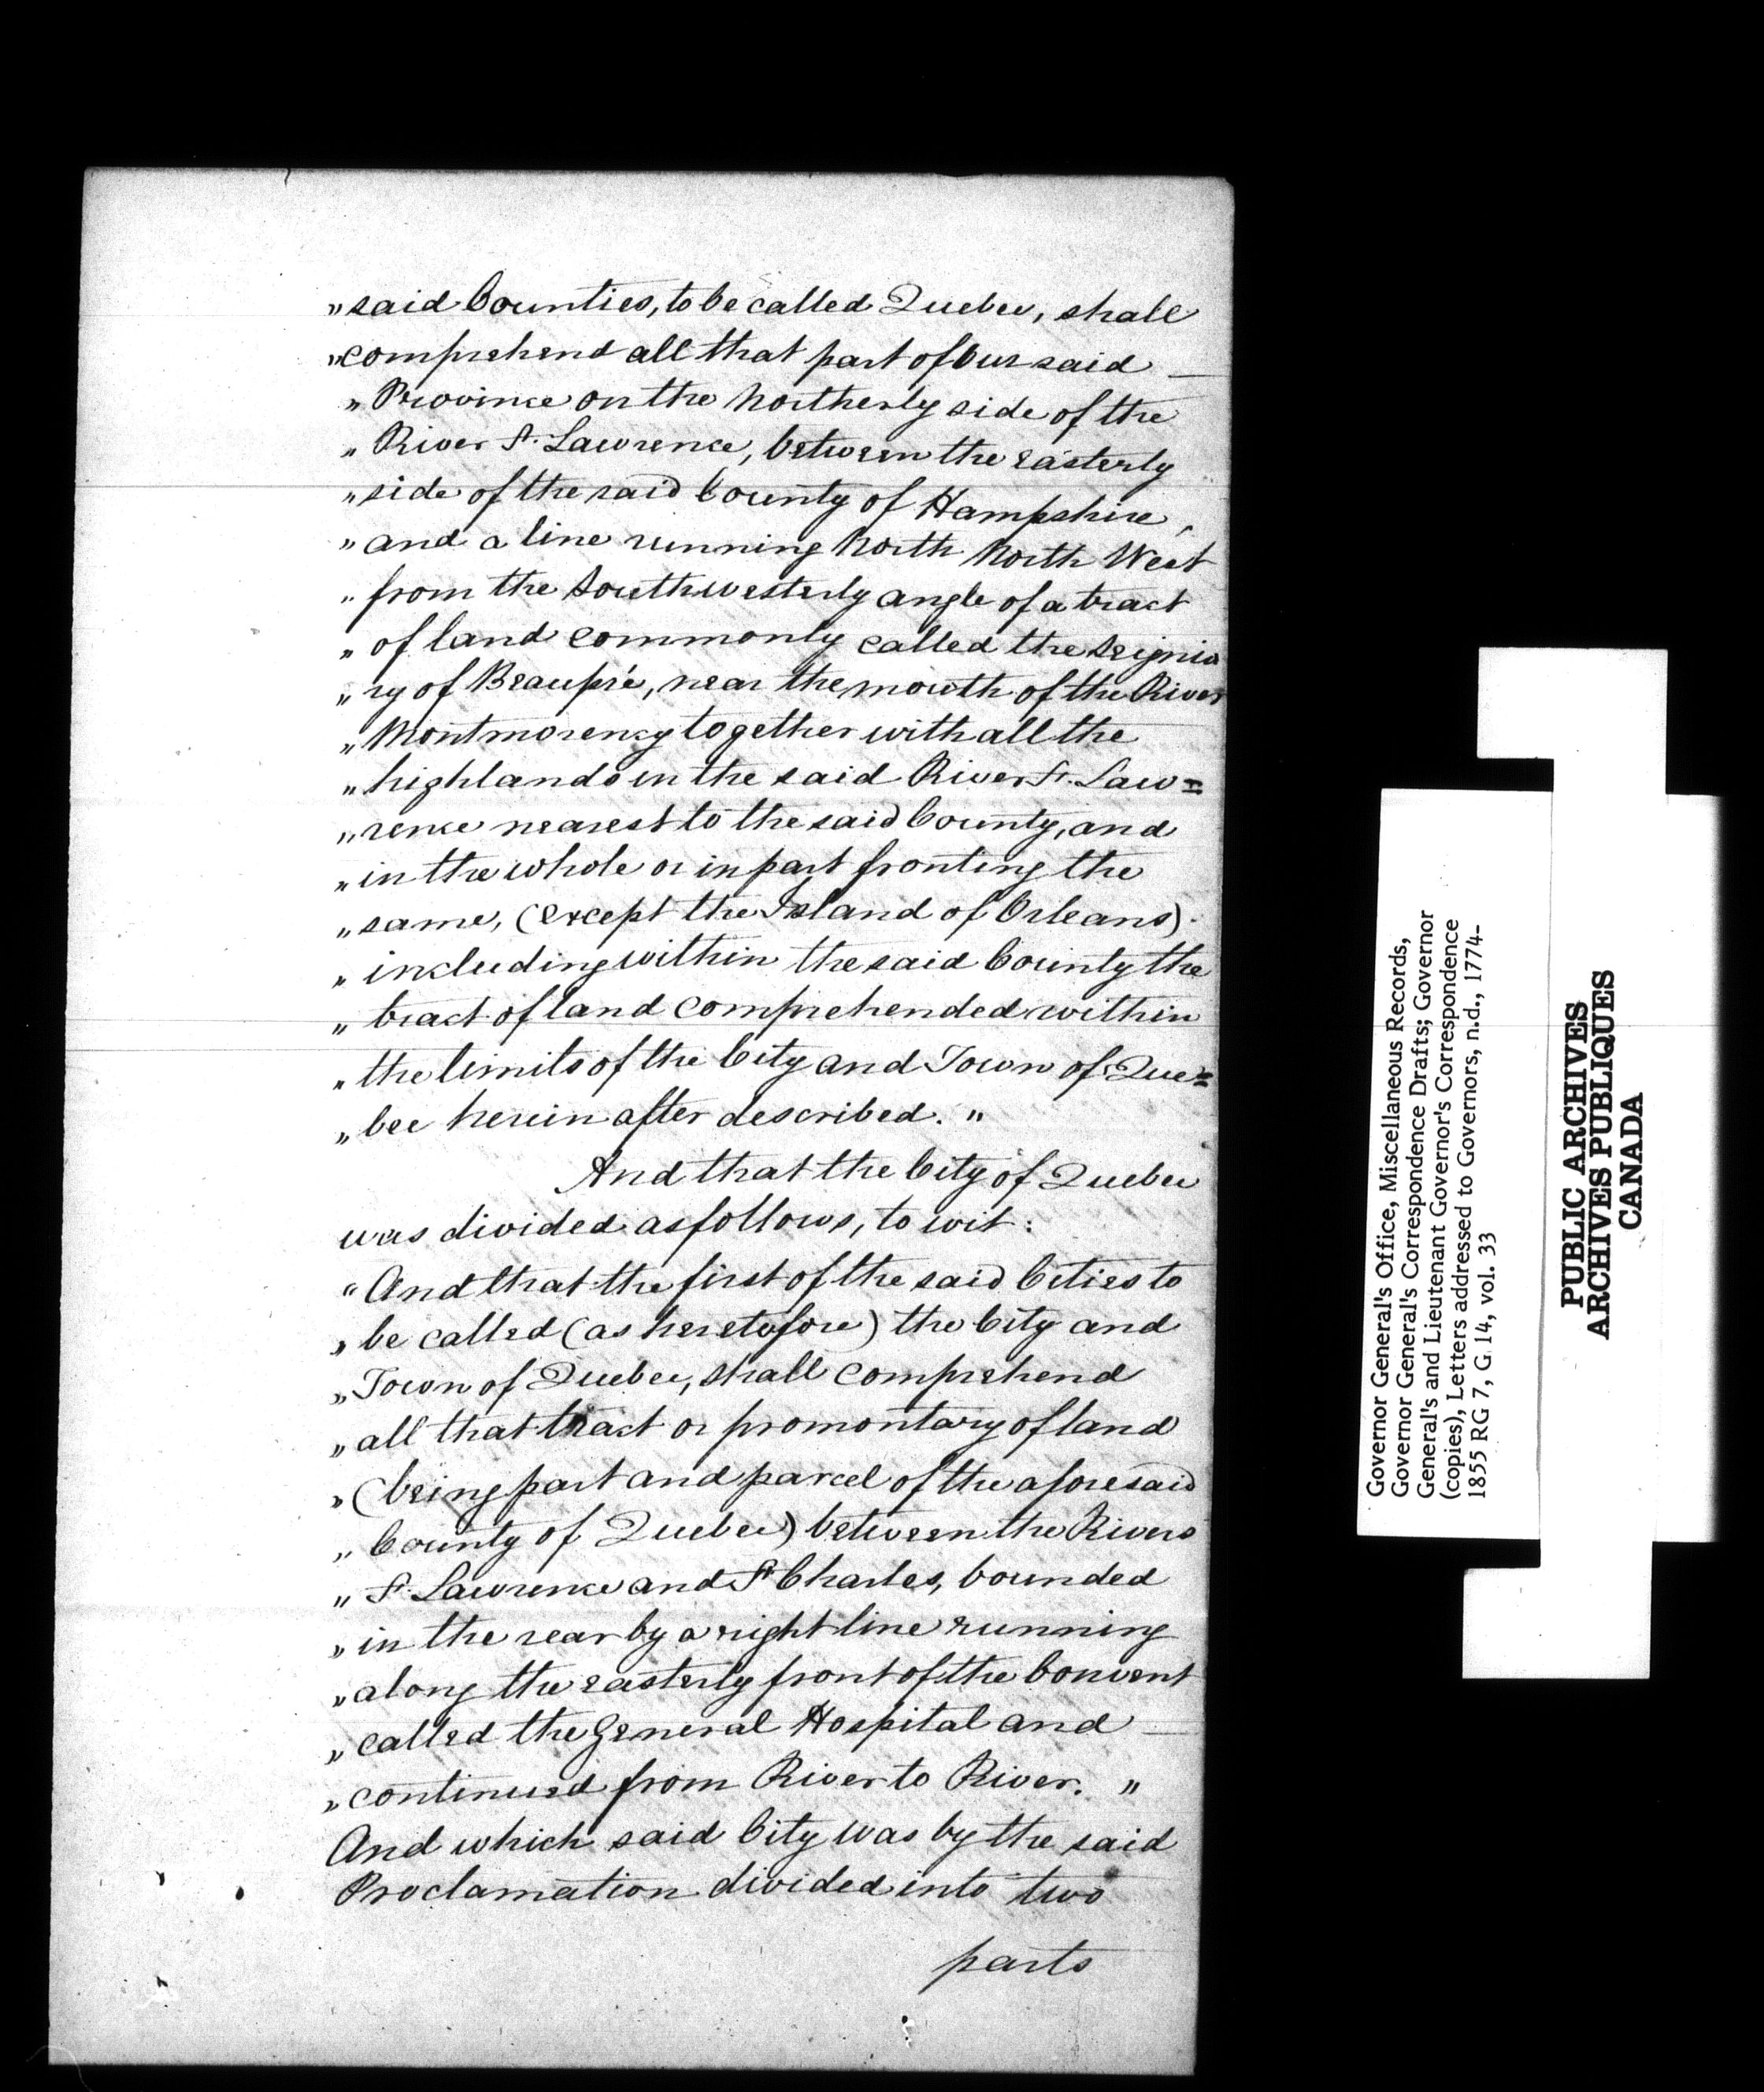 „said Counties, to be called Quebec, shall
„comprehend all that part of Our said —
„Province on the Northerly side of the
„River St. Lawrence, between the easterly
„side of the said County of Hampshire,
„and a line running North North West
„from the Southwesterly angle of a tract
„of land commonly called the Seignio
„ry of Beaupré, near the mouth of the River
„Montmorency together with all the
„highlands in the said River St. Law=
„rence nearest to the said County, and
„in the whole or in part fronting the
„same, (except the Island of Orleans).
„including within the said County the
„tract of land comprehended within
„the limits of the City and Town of Que=
„bec herein after described. "
And that the City of Quebec
was divided as follows, to wit:
"And that the first of the said Cities to
„be called (as heretofore) the City and
„Town of Quebec, shall comprehend
„all that tract or promontary of land
„(being part and parcel of the aforesaid
„County of Quebec) between the Rivers
„St. Lawrence and St Charles, bounded
„in the rear by a right line running
„along the easterly front of the Convent
„called the General Hospital and —
„continued from River to River. "
And which said City was by the said
Proclamation divided into two
parts
Governor General's Office, Miscellaneous Records,
Governor General's Correspondence Drafts; Governor
General's and Lieutenant Governor's Correspondence
(copies), Letters addressed to Governors, n.d., 1774-
1855 RG 7, G 14, vol. 33
PUBLIC ARCHIVES
ARCHIVES PUBLIQUES
CANADA